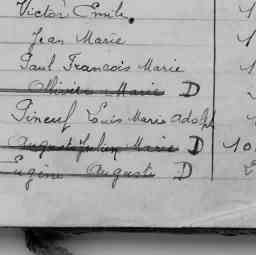 Victor Emile.
Jean Marie
Paul Francois Marie
Ollivier Marie D
Pineuf Louis Marie Adolph
Auguste Julien Marie D 10
Eugène Auguste D